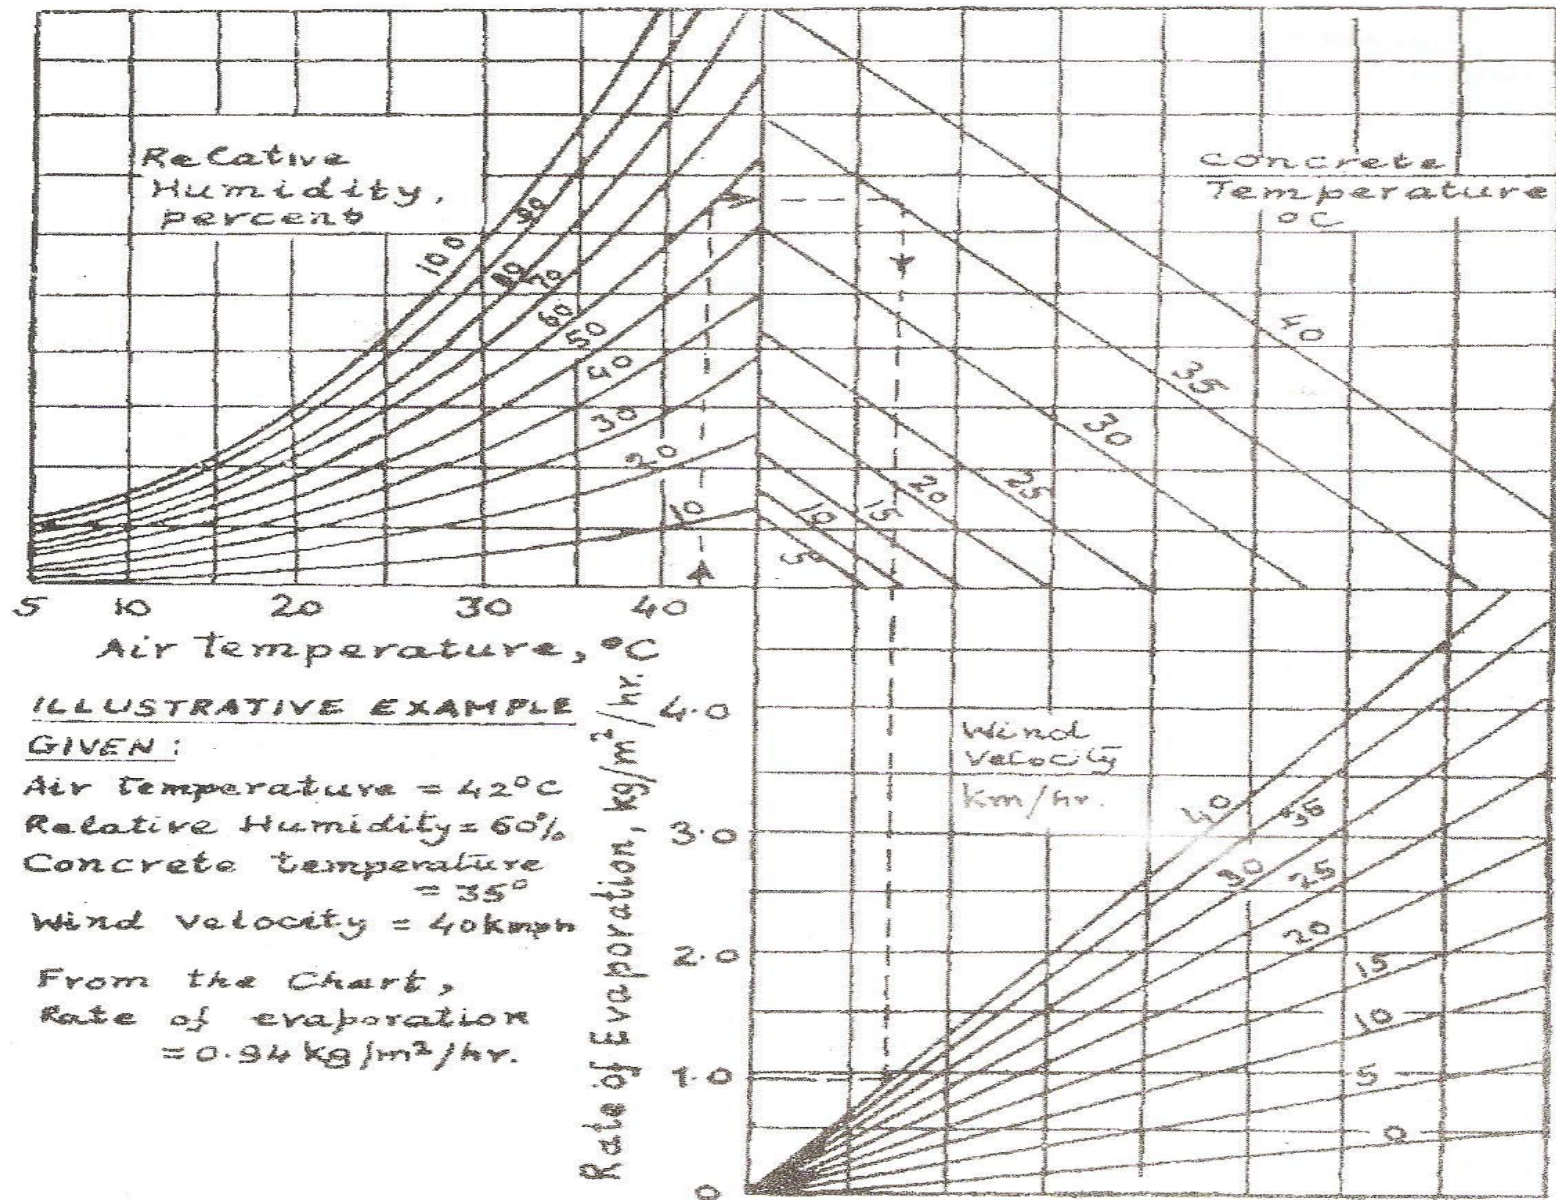 Relative
Humidity,
percent
Concrete
Temperature
°C
100
90
80
70
60
50
40
30
20
10
40
35
30
25
20
15
10
5
5 10 20 30 40
Air temperature, °C
ILLUSTRATIVE EXAMPLE
GIVEN:
Air temperature = 42°C
Relative Humidity = 60%
Concrete temperature
= 35°
Wind velocity = 40 kmph
From the Chart,
Rate of evaporation
= 0.94 kg/m²/hr.
Rate of Evaporation, kg/m²/hr.
4.0
3.0
2.0
1.0
0
Wind
Velocity
km/hr.
40
35
30
25
20
15
10
5
0